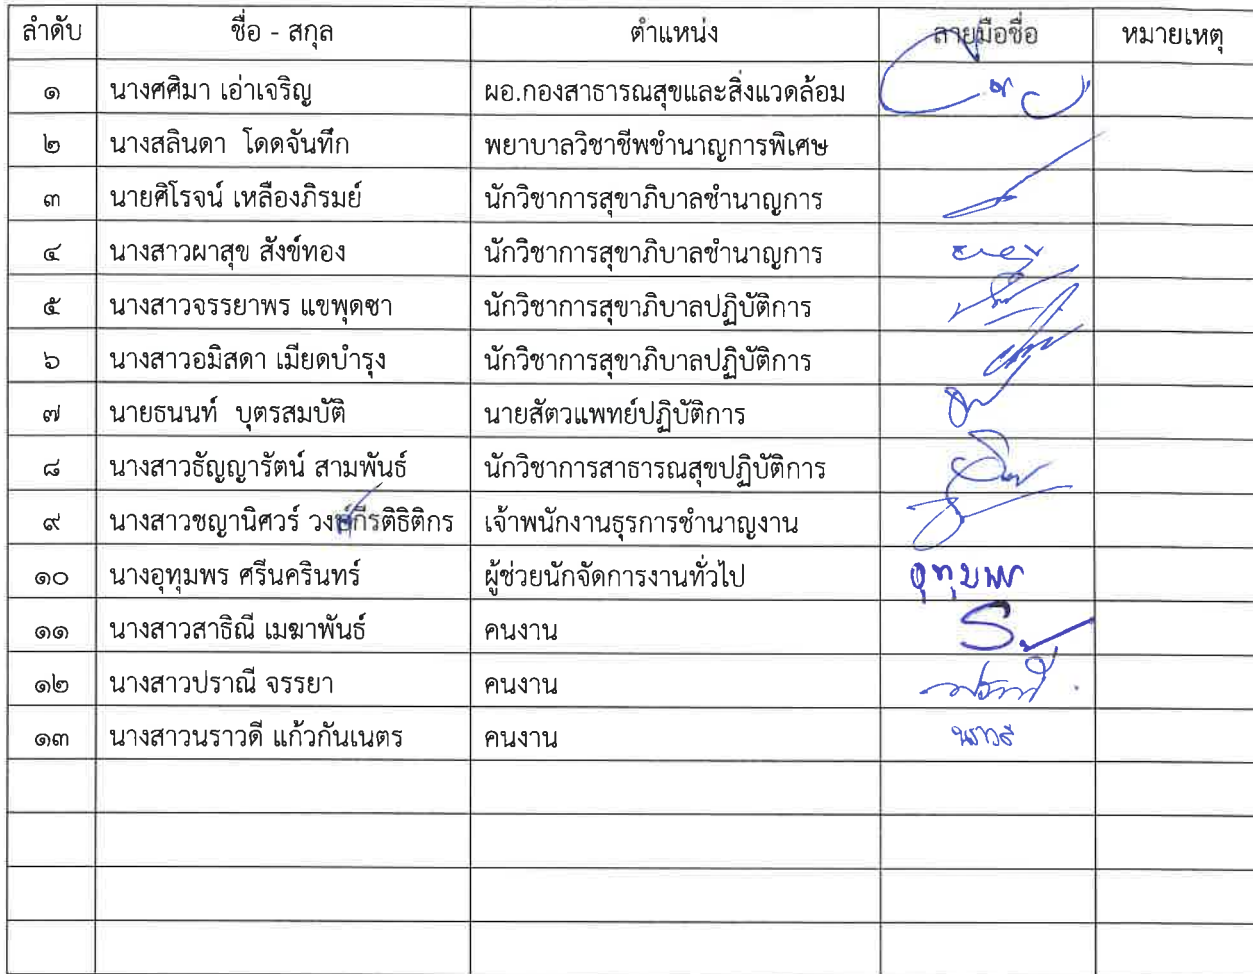 ลำดับ ชื่อ - สกุล ตำแหน่ง ลายมือชื่อ หมายเหตุ
๑ นางศศิมา เอ่าเจริญ ผอ.กองสาธารณสุขและสิ่งแวดล้อม
๒ นางสลินดา โดดจันทึก พยาบาลวิชาชีพชำนาญการพิเศษ
๓ นายศิโรจน์ เหลืองภิรมย์ นักวิชาการสุขาภิบาลชำนาญการ
๔ นางสาวผาสุข สังข์ทอง นักวิชาการสุขาภิบาลชำนาญการ
๕ นางสาวจรรยาพร แขพุดซา นักวิชาการสุขาภิบาลปฏิบัติการ
๖ นางสาวอมิสดา เมียดบำรุง นักวิชาการสุขาภิบาลปฏิบัติการ
๗ นายธนนท์ บุตรสมบัติ นายสัตวแพทย์ปฏิบัติการ
๘ นางสาวธัญญารัตน์ สามพันธ์ นักวิชาการสาธารณสุขปฏิบัติการ
๙ นางสาวชญานิศวร์ วงษ์กีรติธิติกร เจ้าพนักงานธุรการชำนาญงาน
๑๐ นางอุทุมพร ศรีนครินทร์ ผู้ช่วยนักจัดการงานทั่วไป อุทุมพร
๑๑ นางสาวสาธิณี เมฆาพันธ์ คนงาน
๑๒ นางสาวปราณี จรรยา คนงาน ปราณี
๑๓ นางสาวนราวดี แก้วกันเนตร คนงาน นราวดี